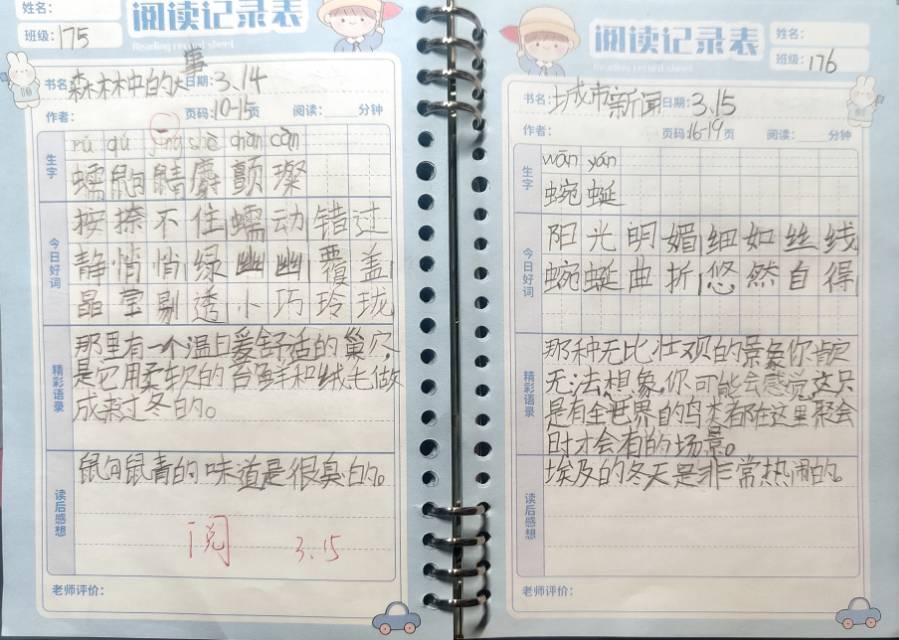 姓名：
阅读记录表
班级：175
Reading record sheet
书名：森林中的大事 日期：3.14
作者： 页码：10-15页 阅读： 分钟
生字
rú qú jīng shè diān càn
蠕 鼩 鼱 麝 颤 璨
今日好词
按捺不住 蠕动 错过
静悄悄 绿幽幽 覆盖
晶莹剔透 小巧玲珑
精彩语录
那里有一个温且爱舒适的巢穴，
是它用柔软的苔藓和绒毛做
成来过冬的。
读后感想
鼩鼱的味道是很臭的。
阅 3.15
老师评价：
阅读记录表
姓名：
Reading record sheet
班级：176
书名：城市新闻 日期：3.15
作者： 页码：16-19页 阅读： 分钟
生字
wān yán
蜿 蜒
今日好词
阳光明媚 细如丝线
蜿蜒曲折 悠然自得
精彩语录
那种无比壮观的景象你肯定
无法想象，你可能会感觉这只
是有全世界的鸟类都在这里聚会
时才会有的场景。
读后感想
埃及的冬天是非常热闹的。
老师评价：